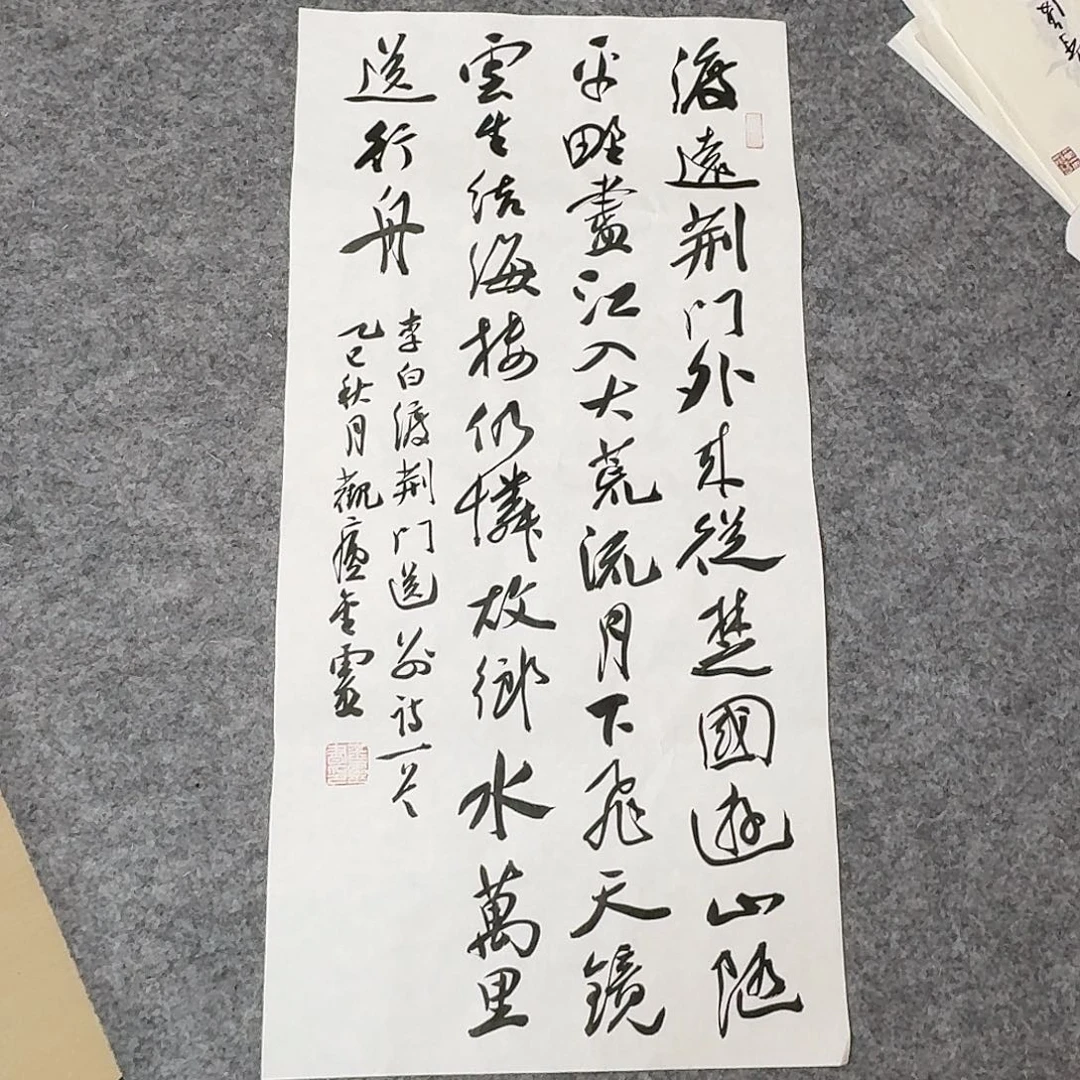 渡遠荆门外来從楚國遊山随
平野盡江入大荒流月下飛天鏡
雲生结海楼仍憐故鄉水萬里
送行舟
李白渡荆门送别诗一首
乙巳秋月觀